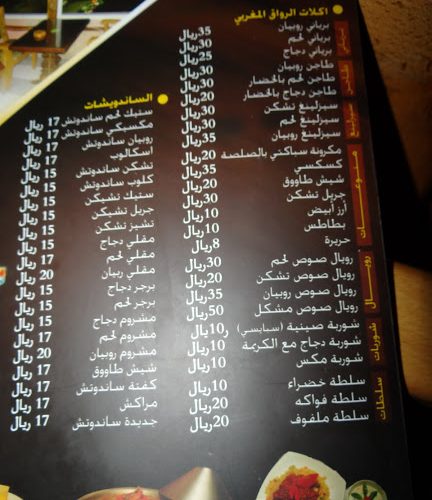 اكلات الرواق المغربي
برياني روبيان 35ريال
برياني لحم 30ريال
برياني دجاج 25ريال
طاجن روبيان 30ريال
طاجن لحم بالخضار 30ريال
طاجن دجاج بالخضار 20ريال
سيزلينغ تشكن 30ريال
سيزلينغ لحم 30ريال
سيزلينغ روبيان 35ريال
مكرونة سباكتي بالصلصة 20ريال
كسكسي 35ريال
شيش طاووق 20ريال
جريل تشكن 30ريال
أرز أبيض 10ريال
بطاطس 10ريال
حريرة 8ريال
رويال صوص لحم 30ريال
رويال صوص تشكن 20ريال
رويال صوص روبيان 35ريال
رويال صوص مشكل 50ريال
شوربة صينية (سبايسي) 10ريال
شوربة دجاج مع الكريمة 10ريال
شوربة مكس 10ريال
سلطة خضراء 10ريال
سلطة فواكه 20ريال
سلطة ملفوف 20ريال
منوعات
رويال
شوربات
سلطات
الساندويشات
ستيك لحم ساندوتش 17 ريال
مكسيكي ساندوتش 17 ريال
روبيان ساندوتش 17 ريال
اسكالوب 17 ريال
تشكن ساندوتش 15 ريال
كلوب ساندوتش 15 ريال
ستيك تشيكن 15 ريال
جريل تشيكن 15 ريال
تشيز تشكن 15 ريال
مقلي دجاج 15 ريال
مقلي لحم 17 ريال
مقلي ربيان 20 ريال
برجر دجاج 15 ريال
برجر لحم 15 ريال
مشروم دجاج 15 ريال
مشروم لحم 17 ريال
مشروم روبيان 20 ريال
شيش طاووق 17 ريال
كفتة ساندوتش 17 ريال
مراكش 17 ريال
جديدة ساندوتش 17 ريال